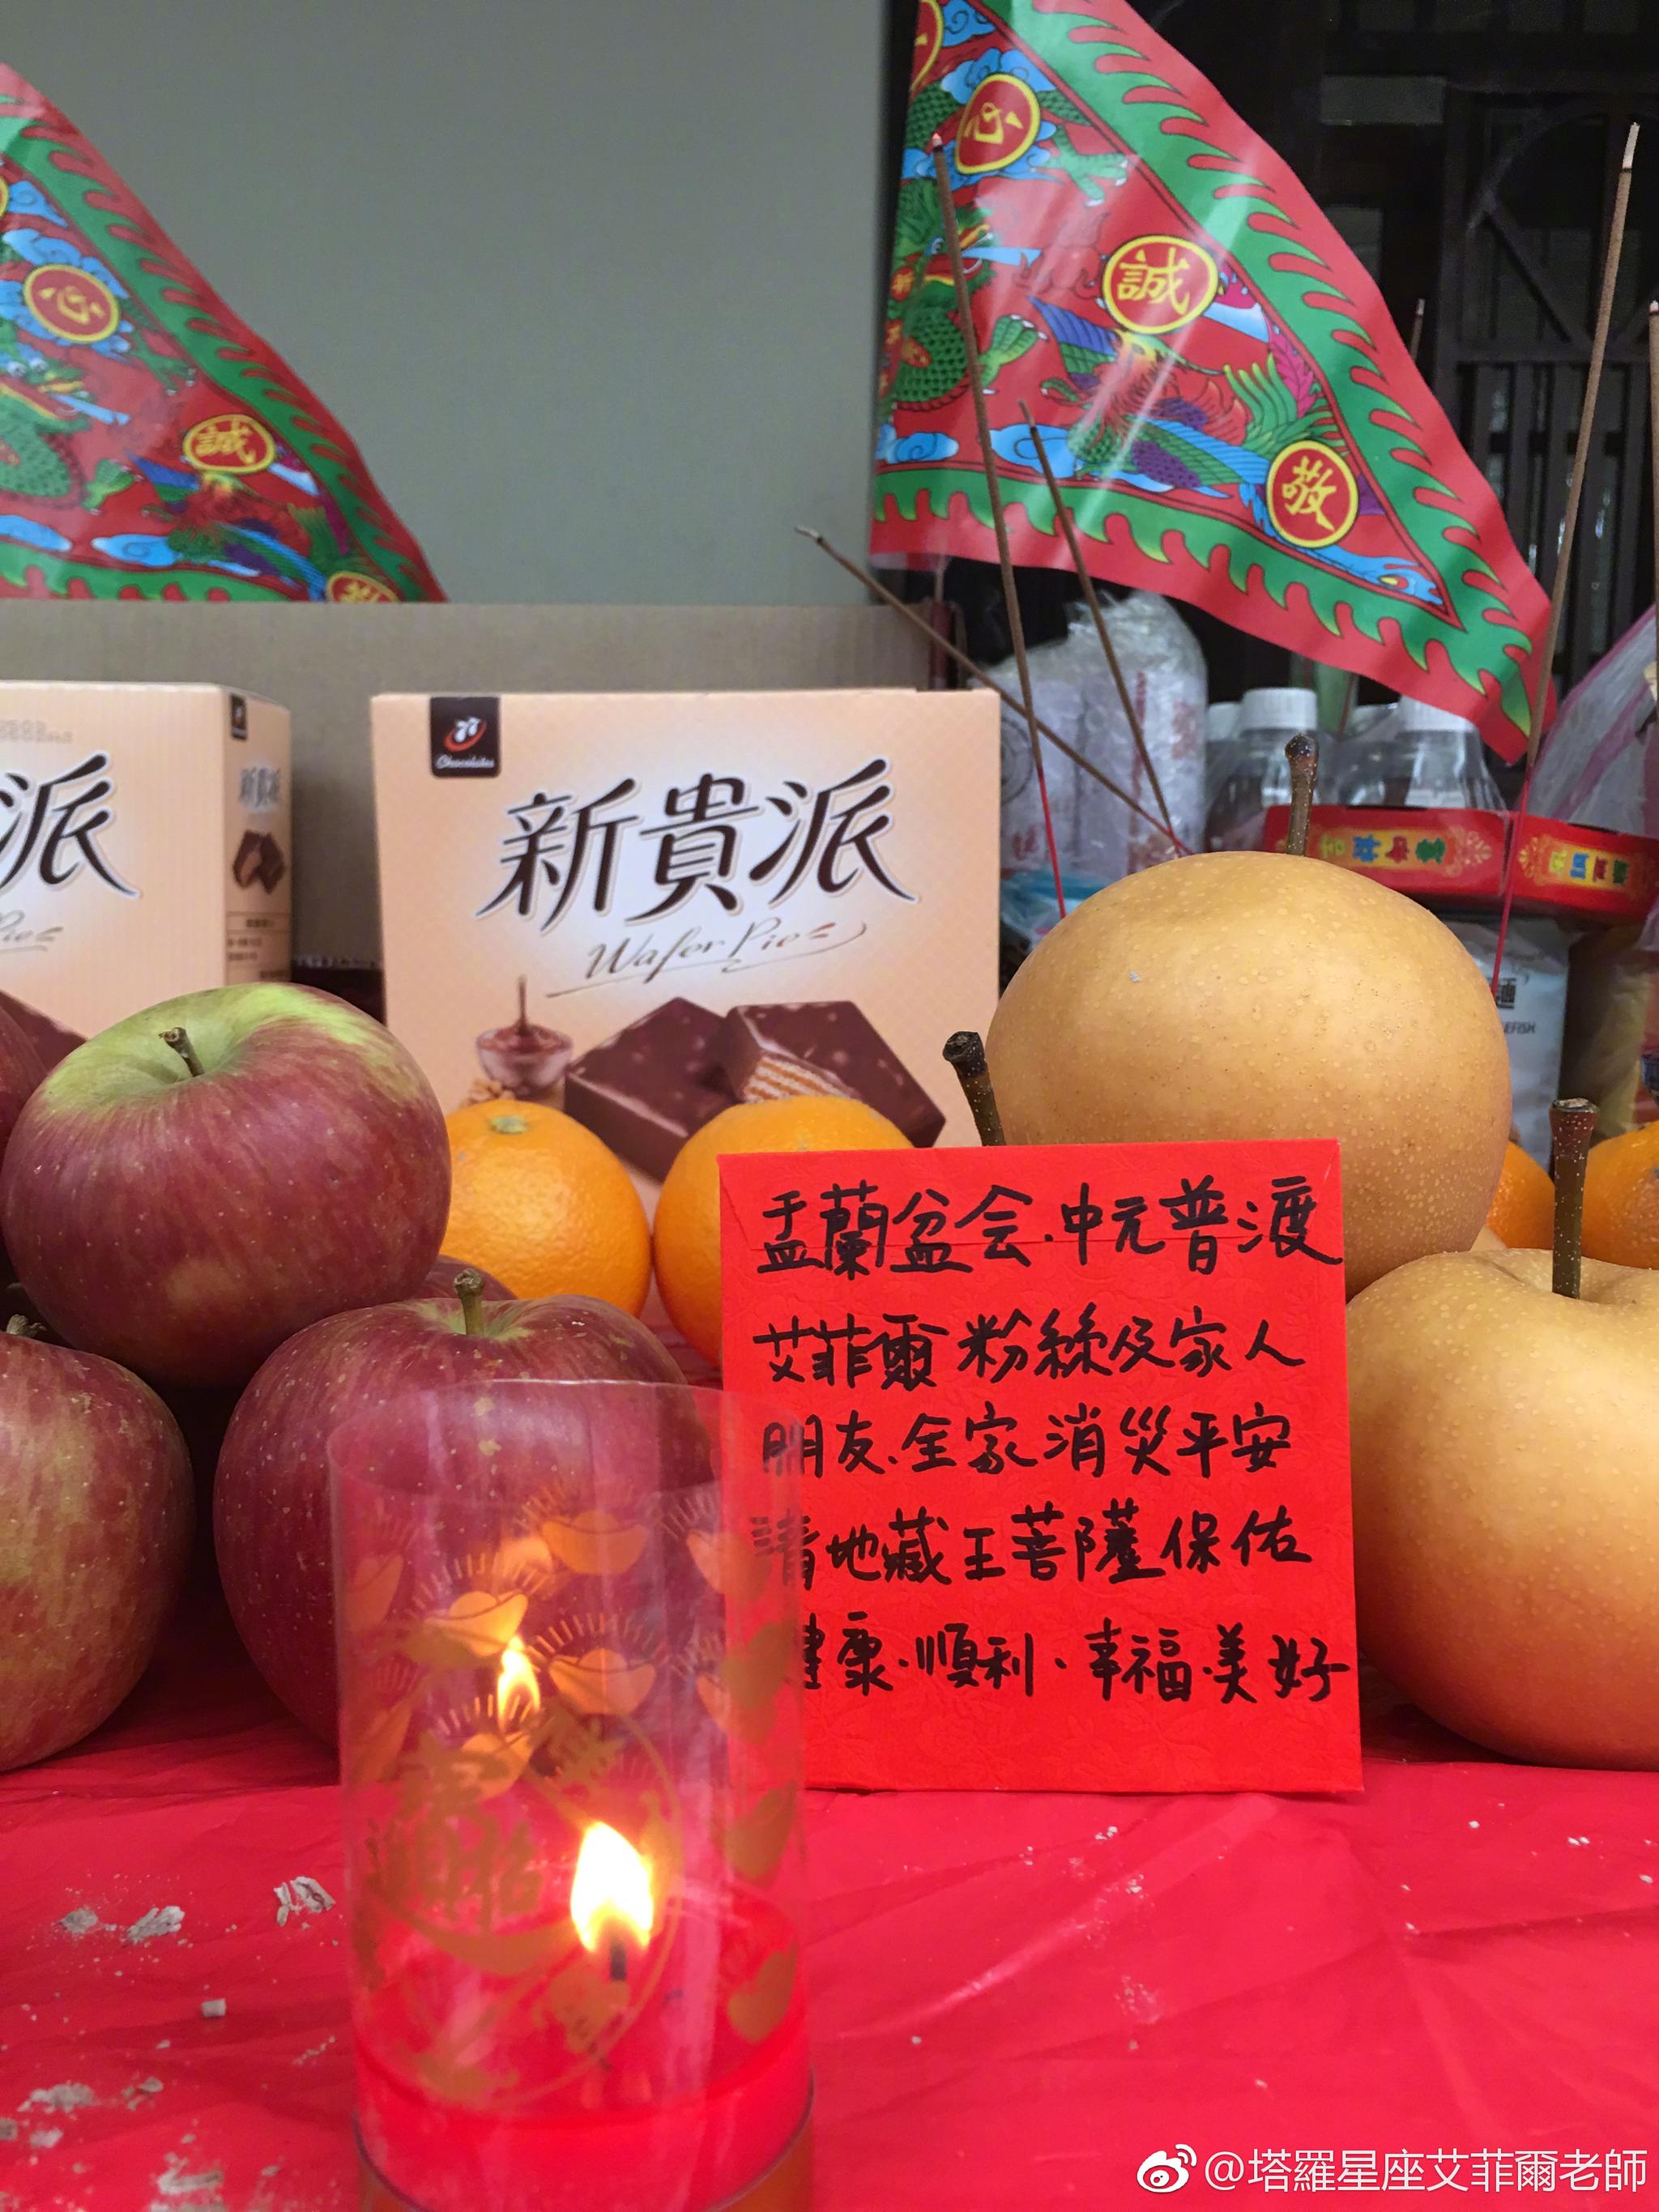 心
誠
敬
心
誠
77
Chocolates
新貴派
Wafer Pie
派
Pie
新貴派
吉祥如意
EFISH
盂蘭盆会.中元普渡
艾菲爾粉絲及家人
朋友.全家消災平安
請地藏王菩薩保佑
健康.順利.幸福.美好
招
@塔羅星座艾菲爾老師